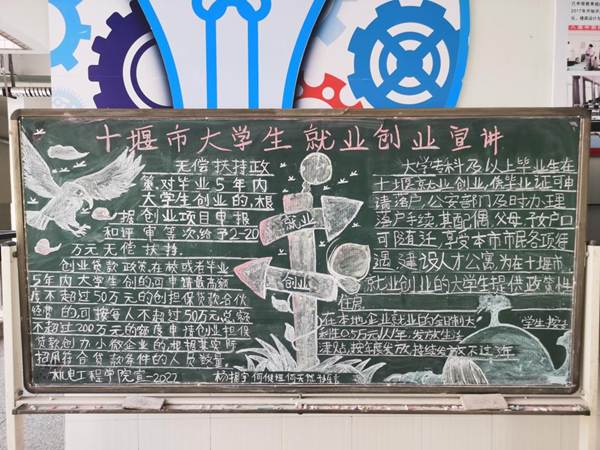 十堰市大学生就业创业宣讲
无偿扶持政
策:对毕业5年内
大学生创业的,根
据创业项目申报
和评审等次给予2-20
万元无偿扶持.
创业贷款政策.在校或者毕业
5年内大学生创的可申请最高额
度不超过50万元的创担保贷款合伙
经营的可按每人不超过50万元,总额
不超过200万元的额度申请创业担保
贷款创办小微企业的根据其实际
招用符合贷款条件的人员数量.
机电工程学院宣-2022
就业
创业
大学专科及以上毕业生在
十堰就业创业,凭毕业证可申
请落户,公安部门及时办理
落户手续.其配偶、父母、子女户口
可随迁,享受本市市民各项待
遇.建设人才公寓,为在十堰市
就业创业的大学生提供政策性
住房
在本地企业就业的全日制大
万元从/年,发放生活
津贴,按年度发放,持续发放不过3年